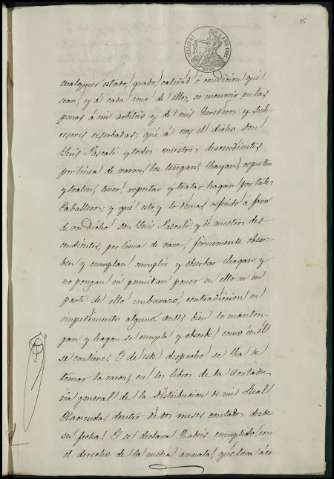 cualquier estado, grado, calidad y condicion que
sean, y á cada uno de ellos, se incurrir en las
penas á mi arbitrio y de mis herederos y sub-
cesores reservadas, que á vos el dicho don
Luis Pascali y todos vuestros descendientes
por linea de varon, los tengan, hayan, reputen
y traten, como reputar y tratar hagan por tales
Caballeros: y que esto y lo demas referido á favor
de vos dicho don Luis Pascali, y de vuestros des-
cendientes, por linea de varon, firmemente obser-
ben y cumplan, cumplir y observar hagan y
no pongan ni permitan poner en ello ni en
parte de ello embarazo, contradiccion ni
impedimento alguno, antes bien lo manten-
gan y hagan se cumpla y observe como en él
se contiene. Y de este despacho se ha de
tomar la razon, en los libros de la Contadu-
ria general de la Distribucion de mi Real
Hacienda, dentro de dos meses contados desde
su fecha. Y se declara haberse cumplido con
el derecho de la media annata, que